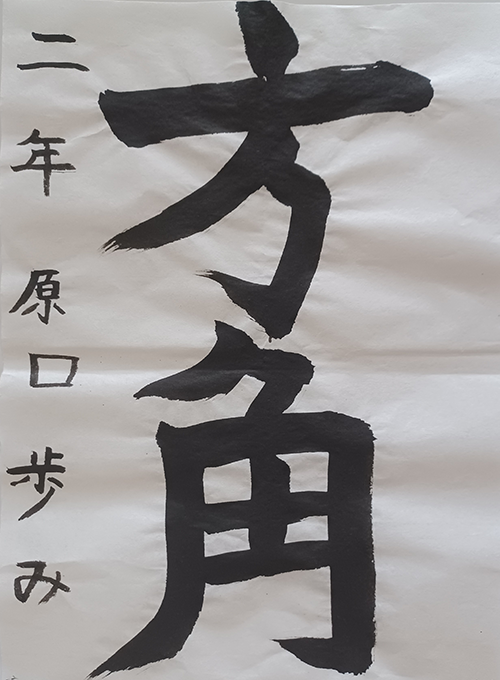 方角
二年 原口歩み